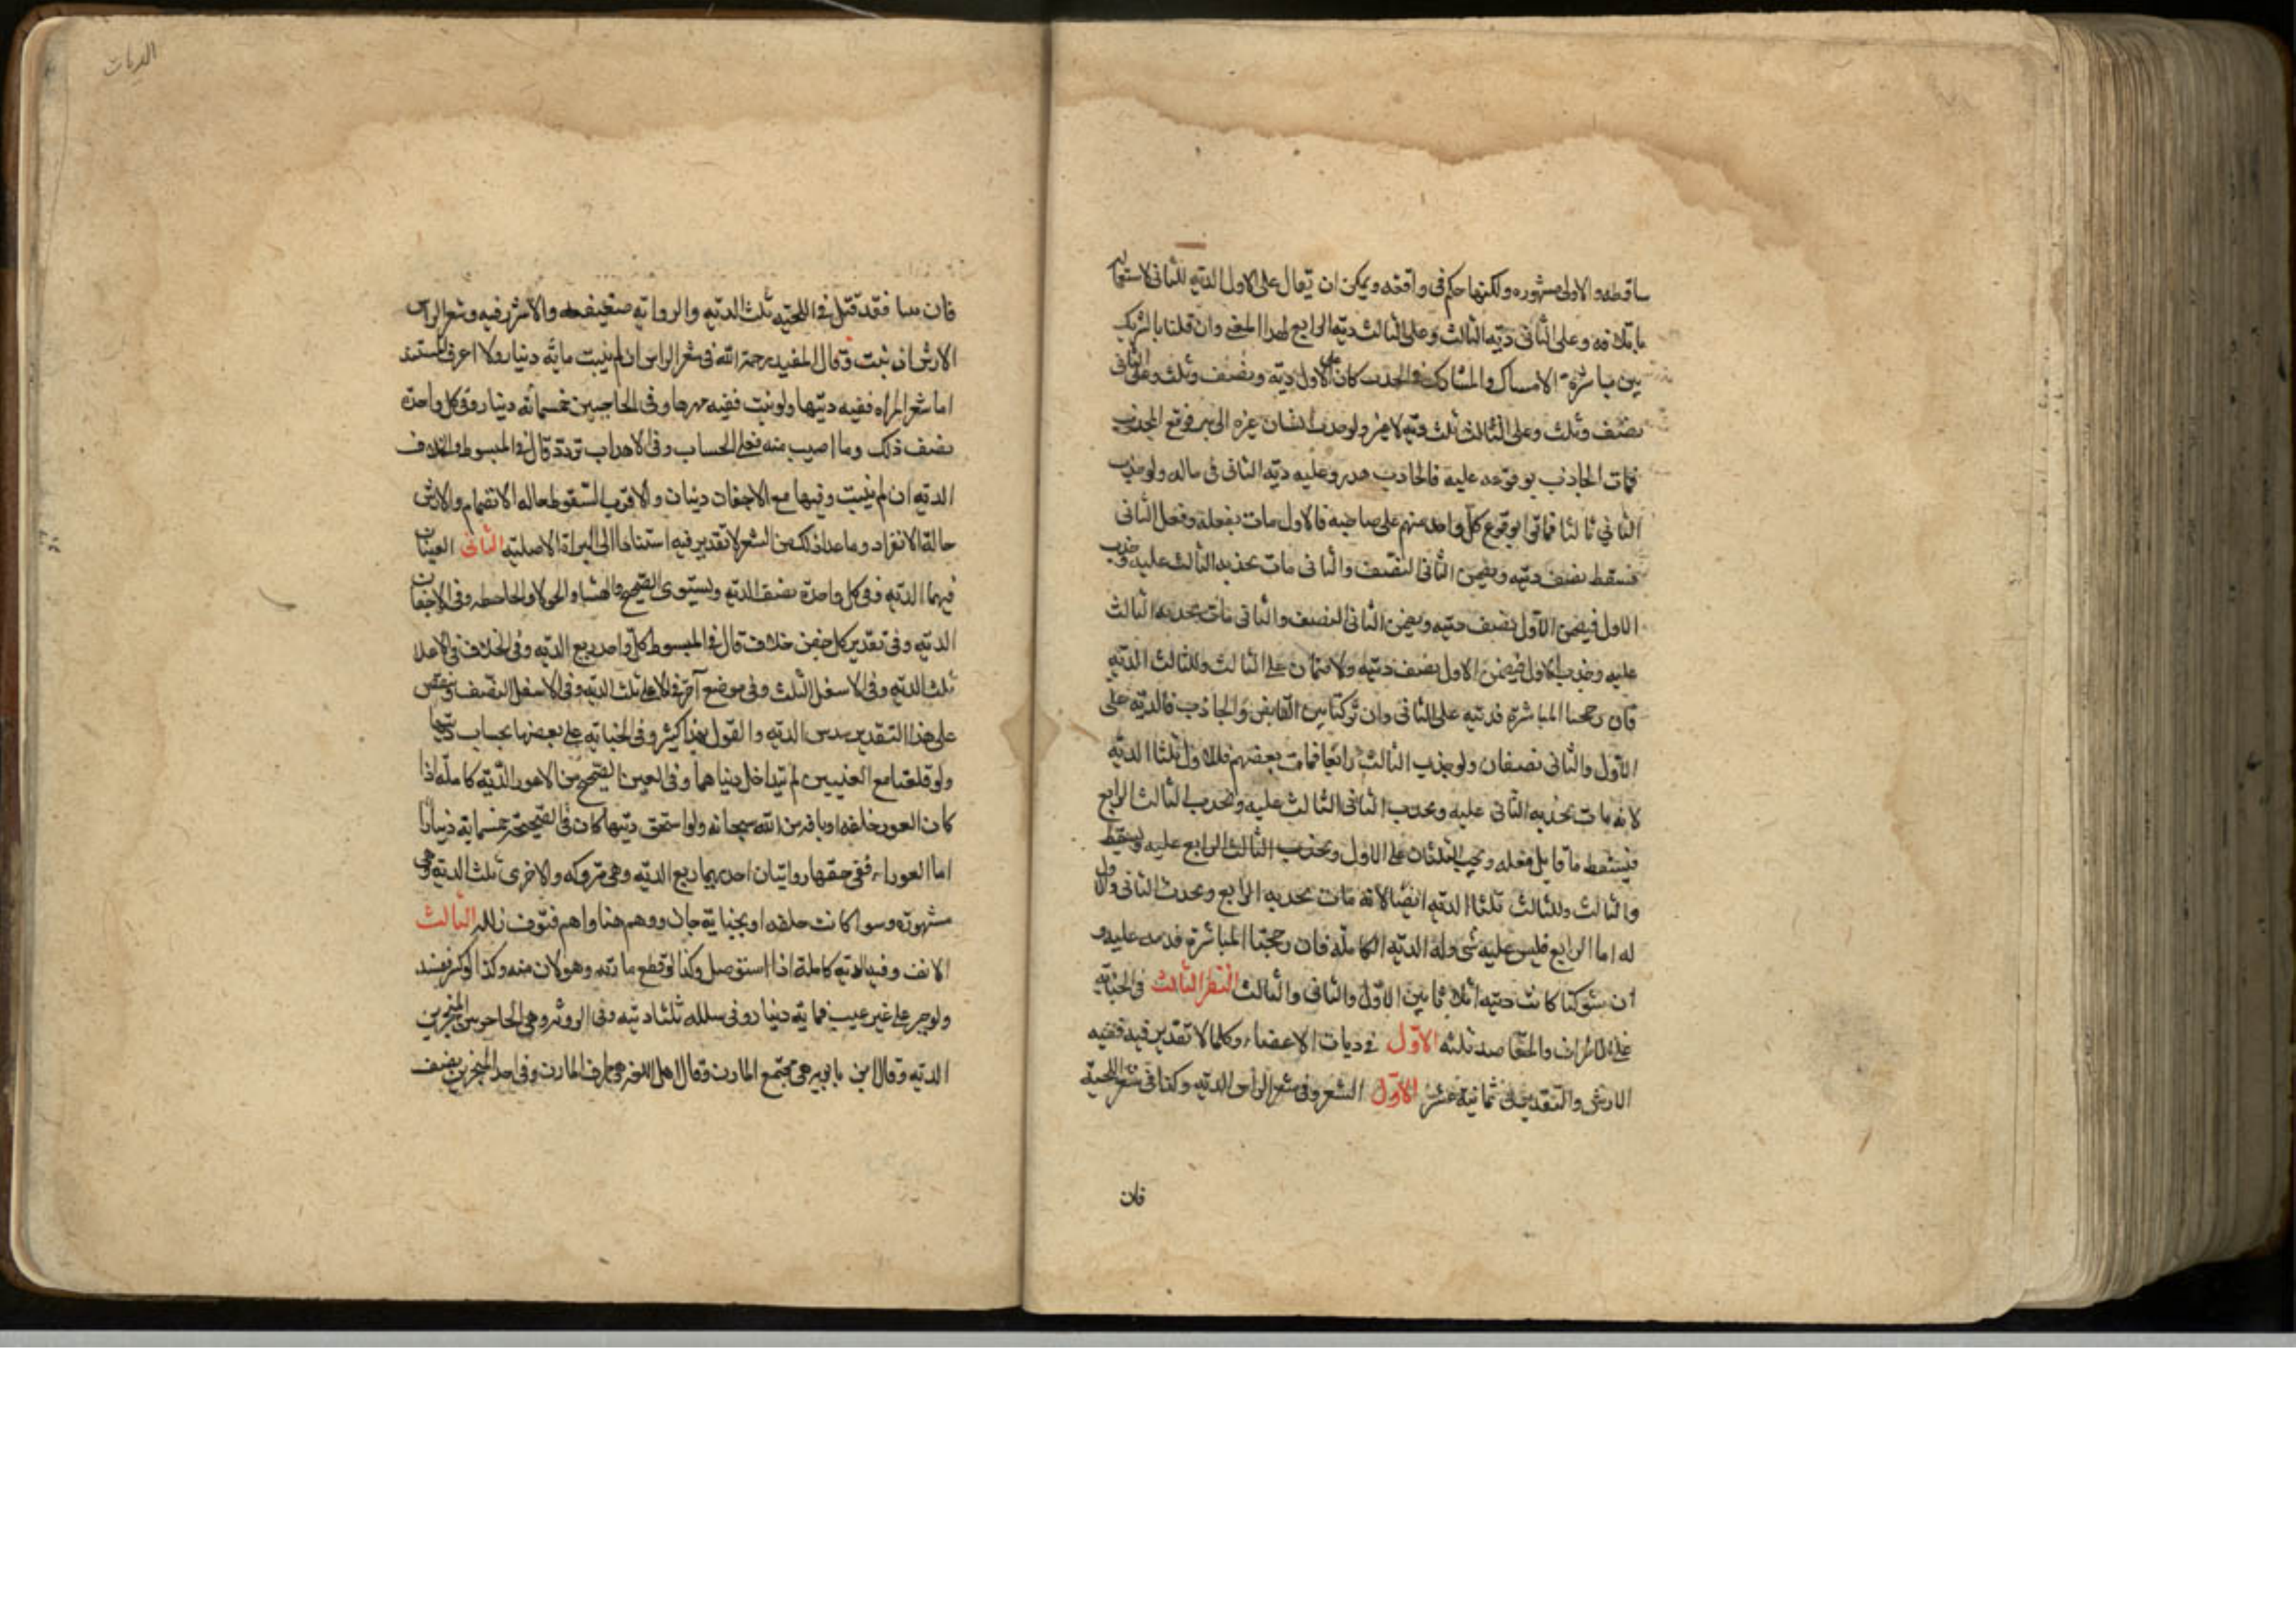 ساقطه والاولى مشهوره ولكنها حكم فى واقعه ويمكن ان يقال على الاول الدية للثانى لاستقلاله
باتلافه وعلى الثانى ديه الثالث وعلى الثالث ديه الرابع لهذا المعنى وان قلنا بالتشريك
بين مباشرة الامساك والمشارك فى الجذب كان على الاول ديه ونصف وثلث وعلى الثانى
نصف وثلث وعلى الثالث ثلث ديه لا غير ولو جذب انسان غيره الى بير فوقع المجذوب
فمات الجاذب بوقوعه عليه فالجاذب هدر وعليه ديه الثانى فى ماله ولو جذب
الثاني ثالثا فماتوا بوقوع كل واحد منهم على صاحبه فالاول مات بفعله وفعل الثانى
فسقط نصف ديته ويضمن الثانى النصف والثانى مات بجذبه الثالث عليه وجذب
الاول فيضمن الاول نصف ديته ويضمن الثانى النصف والثانى مات بجذبه الثالث
عليه وجذب الاول فيضمن الاول نصف ديته ولا ضمان على الثالث وللثالث الديه
فان رجحنا المباشرة فديته على الثانى وان شركنا بين القابض والجاذب فالديه على
الاول والثانى نصفان ولو جذب الثالث رابعا فمات بعضهم فللاول ثلثا الديه
لانه مات بجذبه الثانى عليه وبجذب الثانى الثالث عليه وبجذب الثالث الرابع
فيسقط ما قابل فعله ويجب الثلثان على الاول وبجذب الثالث الرابع عليه ويسقط
والثالث وللثالث ثلثا الديه ايضا لانه مات بجذبه الرابع وبجذب الثانى والاول
له اما الرابع فليس عليه شى وله الديه الكاملة فان رجحنا المباشرة فديته عليه و
ان شركنا كانت ديته اثلاثا بين الاول والثانى والثالث النظر الثالث فى الجنايه
على الاطراف والمقاصد ثلثه الاول فى ديات الاعضاء وكلما لا تقدير فيه ففيه
الارش والتقدير فى ثمانية عشر الاول الشعر وفى شعر الراس الديه وكذا فى شعر اللحية
فان
الديات
فان نبتا فقد قيل فى اللحيه ثلث الديه والرواية ضعيفه والاشبه فيه وشعر الراس
الارش ان نبت وقال المفيد رحمة الله فى شعر الراس ان لم ينبت مايه دينار ولا اعرف المستند
اما شعر المراه ففيه ديتها ولو نبت ففيه مهرها وفى الحاجبين خمسمائه دينار وفى كل واحدة
نصف ذلك وما اصيب منه فعلى الحساب وفى الاهداب تردد قال فى المبسوط والخلاف
الديه ان لم ينبت وفيها مع الاجفان ديتان والاقرب السقوط حاله الانضمام والارش
حالة الانفراد وما عدا ذلك من الشعر لا تقدير فيه استنادا الى البراة الاصلية الثانى العينان
فيهما الديه وفى كل واحدة نصف الديه ويستوى الصحيح والعمشاء والحولاء والجاحظه وفى الاجفان
الديه وفى تقدير كل جفن خلاف قال فى المبسوط كل واحد ربع الديه وفى الخلاف فى الاعلا
ثلث الديه وفى الاسفل الثلث وفى موضع آخر فى الاعلى ثلث الديه وفى الاسفل النصف وينقص
على هذا التقدير سدس الديه والقول بهذا كثير وفى الجنايه على بعضها بحساب ديتها
ولو قلعتا مع العينين لم تتداخل ديتاهما وفى العين الصحيح من الاعور الديه كاملة اذا
كان العور خلقه او بافه من الله سبحانه ولو استحق ديتها كان فى الصحيحة خمسمايه دينارا
اما العوراء ففى خسفها روايتان احديهما ربع الديه وهى متروكه والاخرى ثلث الديه وهى
مشهورة وسوا كانت خلقه او بجناية جان ووهم هنا واهم فتوق زلله الثالث
الانف وفيه الديه كاملة اذا استوصل وكذا لو قطع مارنه وهو ما لان منه وكذا لو كسر ففسد
ولو جبر على غير عيب فماية دينار وفى شلله ثلثا ديته وفى الروثه وهى الحاجز بين المنخرين
الديه وقال ابن بابويه هى مجتمع المارن وقال اهل اللغه هى طرف المارن وفى احد المنخرين نصف